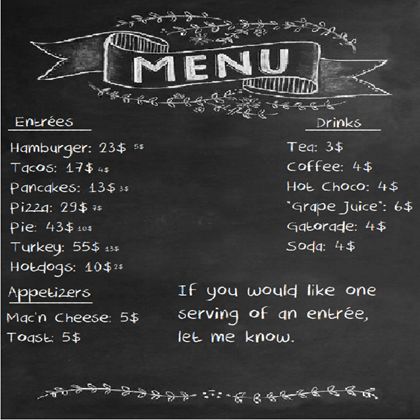 MENU
Entrées
Hamburger: 23$ 5$
Tacos: 17$ 4$
Pancakes: 13$ 3$
Pizza: 29$ 7$
Pie: 43$ 10$
Turkey: 55$ 13$
Hotdogs: 10$ 2$
Appetizers
Mac'n Cheese: 5$
Toast: 5$
Drinks
Tea: 3$
Coffee: 4$
Hot Choco: 4$
"Grape Juice": 6$
Gatorade: 4$
Soda: 4$
If you would like one
serving of an entrée,
let me know.